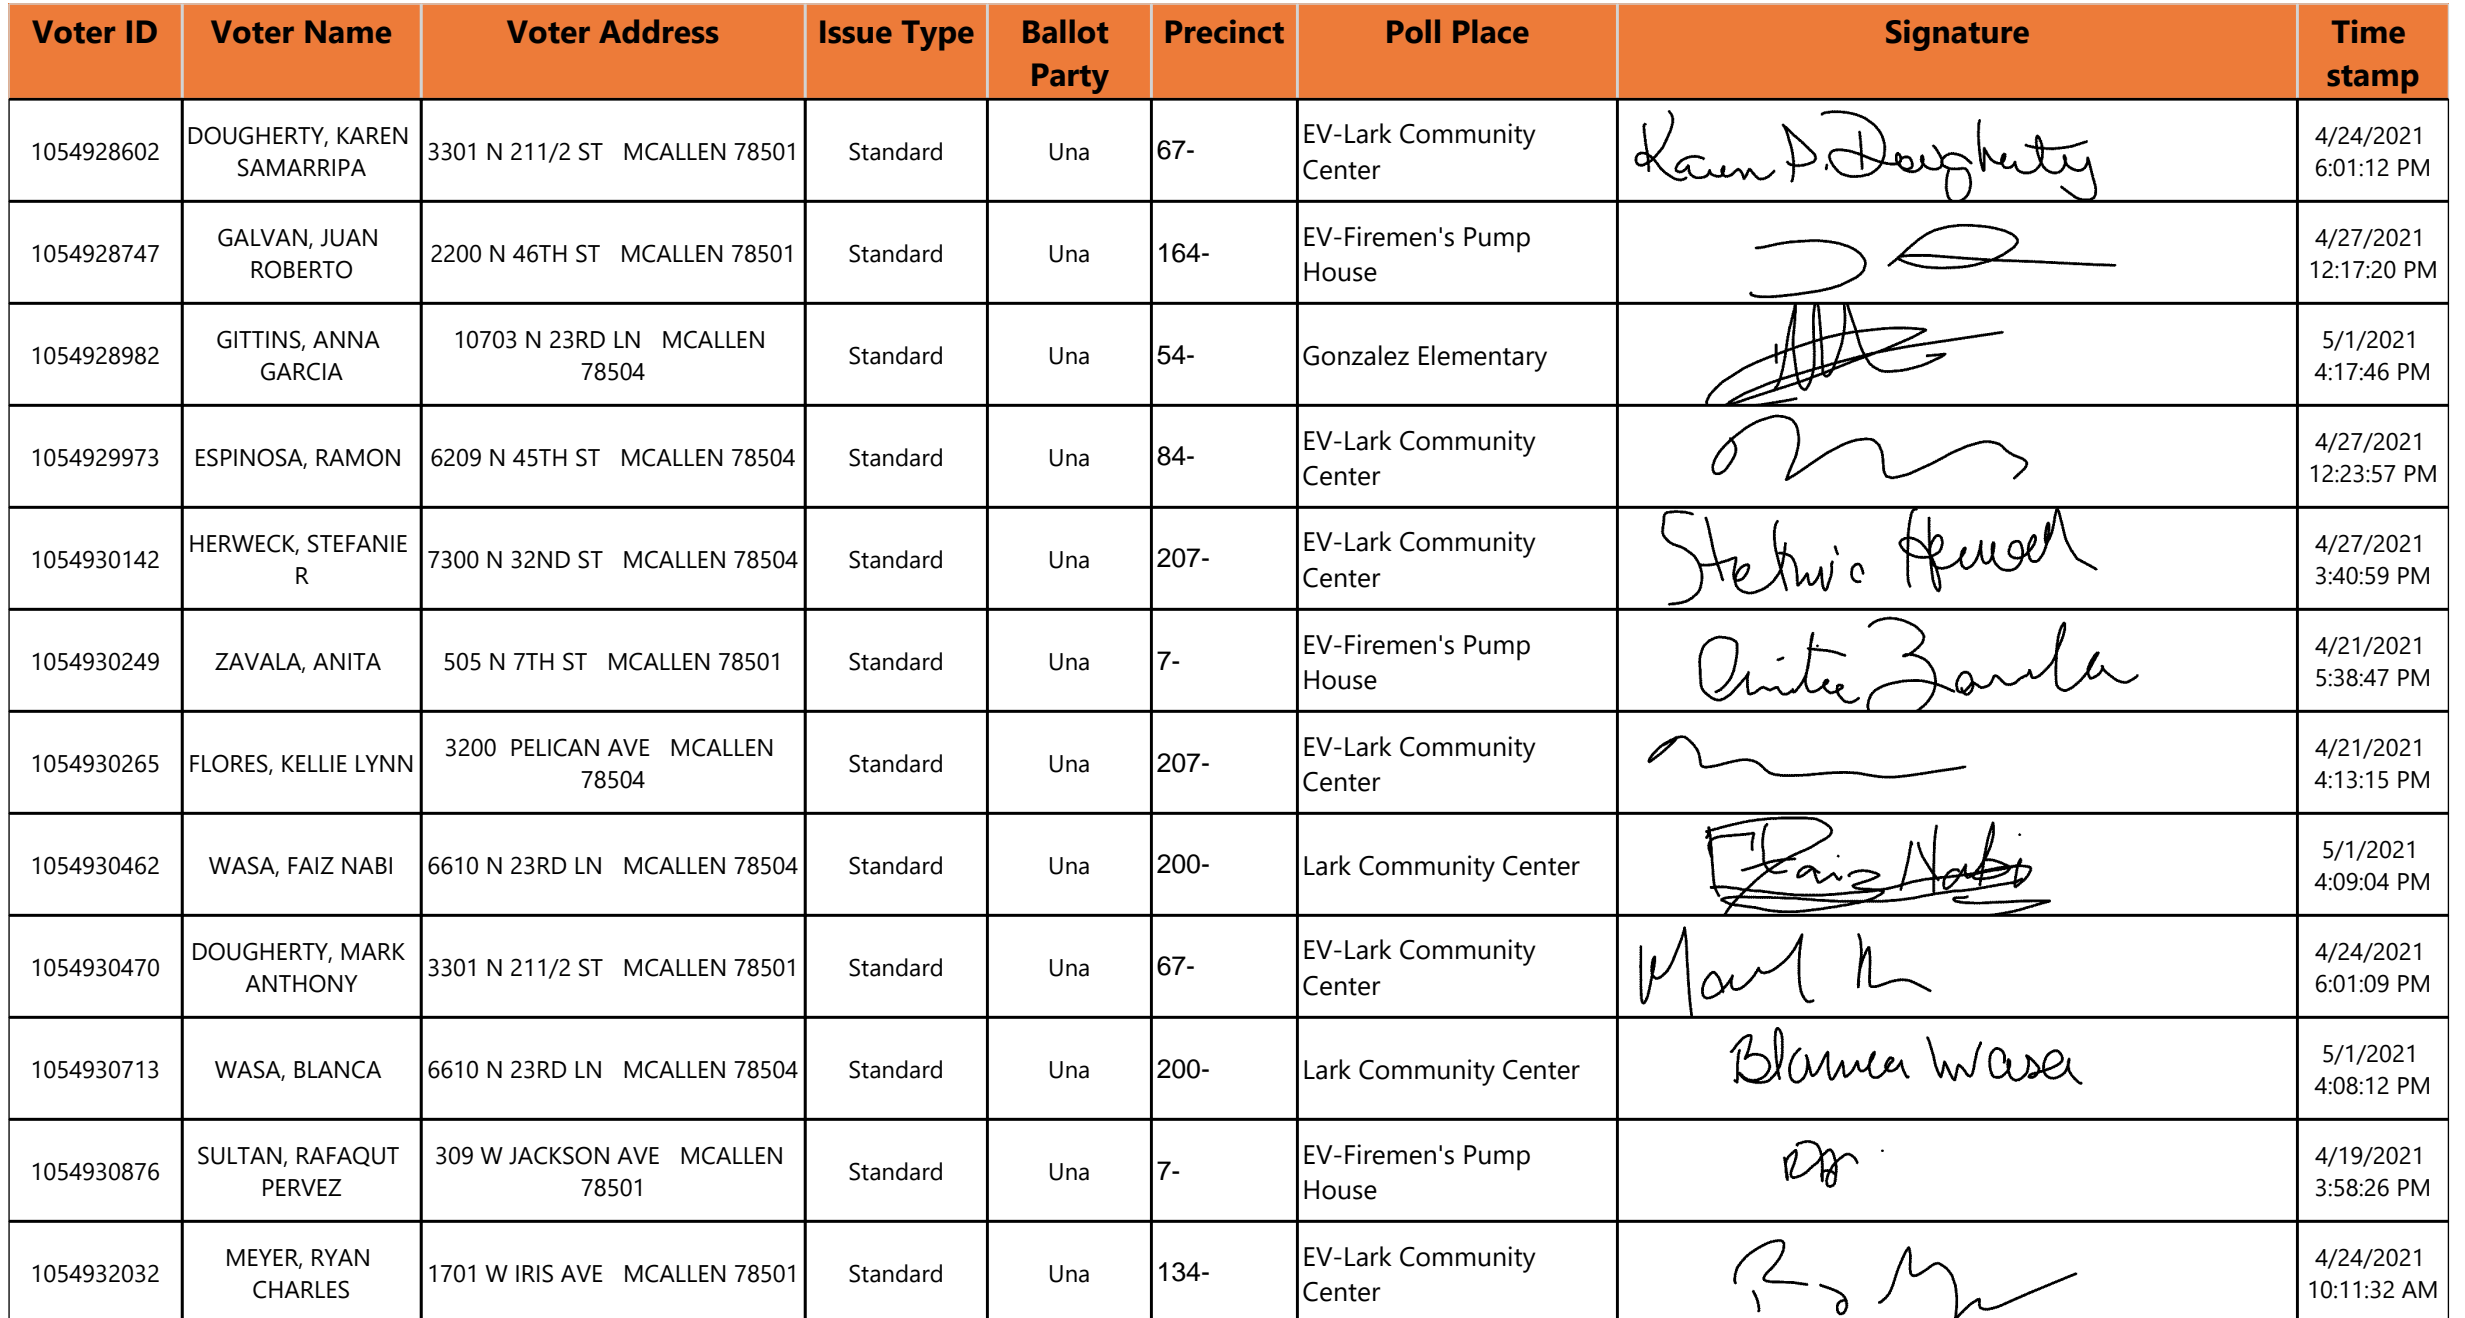 Voter ID Voter Name Voter Address Issue Type Ballot Party Precinct Poll Place Signature Time stamp
1054928602 DOUGHERTY, KAREN SAMARRIPA 3301 N 211/2 ST MCALLEN 78501 Standard Una 67- EV-Lark Community Center Karen P. Dougherty 4/24/2021 6:01:12 PM
1054928747 GALVAN, JUAN ROBERTO 2200 N 46TH ST MCALLEN 78501 Standard Una 164- EV-Firemen's Pump House 4/27/2021 12:17:20 PM
1054928982 GITTINS, ANNA GARCIA 10703 N 23RD LN MCALLEN 78504 Standard Una 54- Gonzalez Elementary 5/1/2021 4:17:46 PM
1054929973 ESPINOSA, RAMON 6209 N 45TH ST MCALLEN 78504 Standard Una 84- EV-Lark Community Center 4/27/2021 12:23:57 PM
1054930142 HERWECK, STEFANIE R 7300 N 32ND ST MCALLEN 78504 Standard Una 207- EV-Lark Community Center 4/27/2021 3:40:59 PM
1054930249 ZAVALA, ANITA 505 N 7TH ST MCALLEN 78501 Standard Una 7- EV-Firemen's Pump House Anita Zavala 4/21/2021 5:38:47 PM
1054930265 FLORES, KELLIE LYNN 3200 PELICAN AVE MCALLEN 78504 Standard Una 207- EV-Lark Community Center 4/21/2021 4:13:15 PM
1054930462 WASA, FAIZ NABI 6610 N 23RD LN MCALLEN 78504 Standard Una 200- Lark Community Center Faiz Nabi 5/1/2021 4:09:04 PM
1054930470 DOUGHERTY, MARK ANTHONY 3301 N 211/2 ST MCALLEN 78501 Standard Una 67- EV-Lark Community Center 4/24/2021 6:01:09 PM
1054930713 WASA, BLANCA 6610 N 23RD LN MCALLEN 78504 Standard Una 200- Lark Community Center Blanca Wasa 5/1/2021 4:08:12 PM
1054930876 SULTAN, RAFAQUT PERVEZ 309 W JACKSON AVE MCALLEN 78501 Standard Una 7- EV-Firemen's Pump House 4/19/2021 3:58:26 PM
1054932032 MEYER, RYAN CHARLES 1701 W IRIS AVE MCALLEN 78501 Standard Una 134- EV-Lark Community Center 4/24/2021 10:11:32 AM